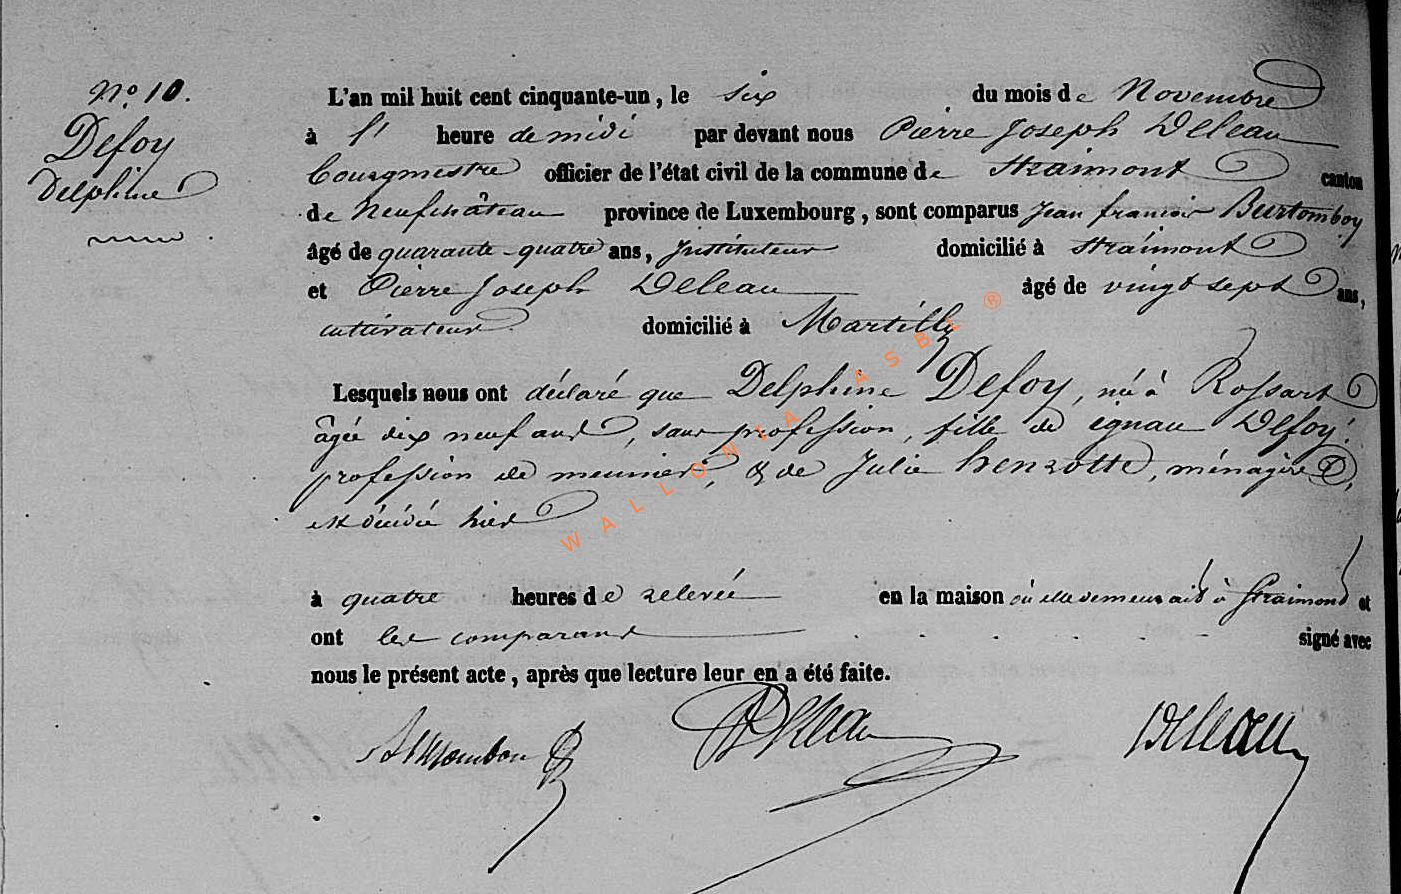 N.º 10.
Defoy
Delphine
L'an mil huit cent cinquante-un, le six du mois de Novembre
à l' heure de midi par devant nous Pierre Joseph Deleau
bourgmestre officier de l'état civil de la commune de Straimont canton
de Neufchâteau province de Luxembourg, sont comparus Jean françois Burtomboy
âgé de quarante-quatre ans, Instituteur domicilié à Straimont
et Pierre Joseph Deleau âgé de vingt sept ans,
cultivateur. domicilié à Martilly
Lesquels nous ont déclaré que Delphine Defoy, née à Rossart
âgée dix neuf ans, sans profession, fille de Defoy.
profession de meunier, & de Julie henrotte, ménagère,
est décédée hier
à quatre heures de relevée en la maison où elle demeurait à Straimond et
ont les comparans signé avec
nous le présent acte, après que lecture leur en a été faite.
Deleau Deleau
WALLONIA ASBL ®